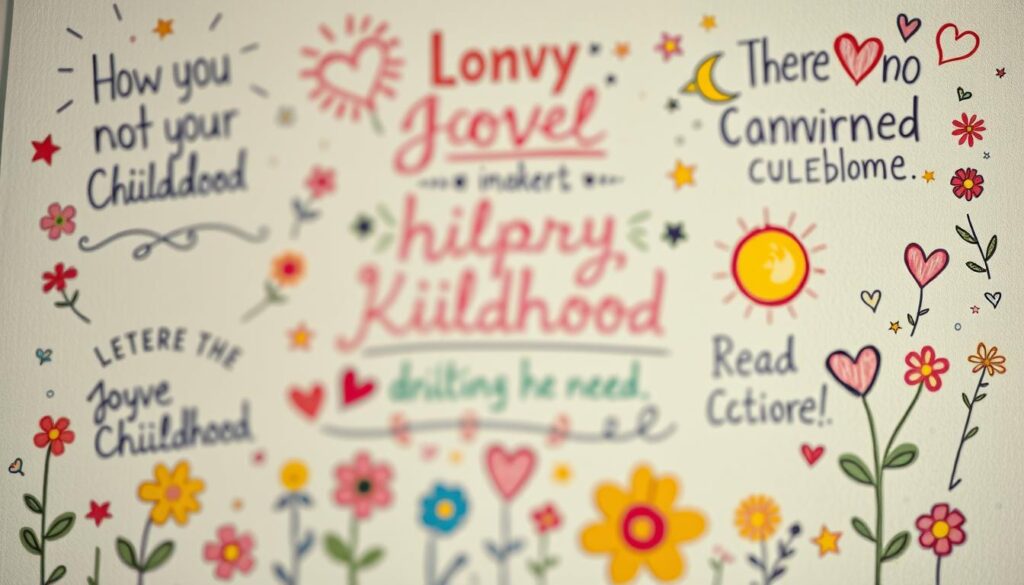 How you
not your
Chiilddood
Lonvy
Jcovel
inokert
hilpry,
Kiildhood
There no
Canrvirned
CULEblome.
LETERE THE
Joyve
Chiildhood
he need.
Read
Cctiore!.